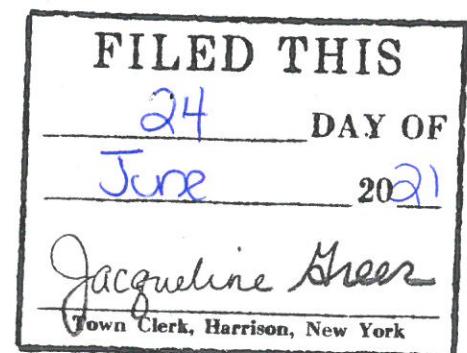 FILED THIS
24 DAY OF
June 2021
Jacqueline Greer
Town Clerk, Harrison, New York